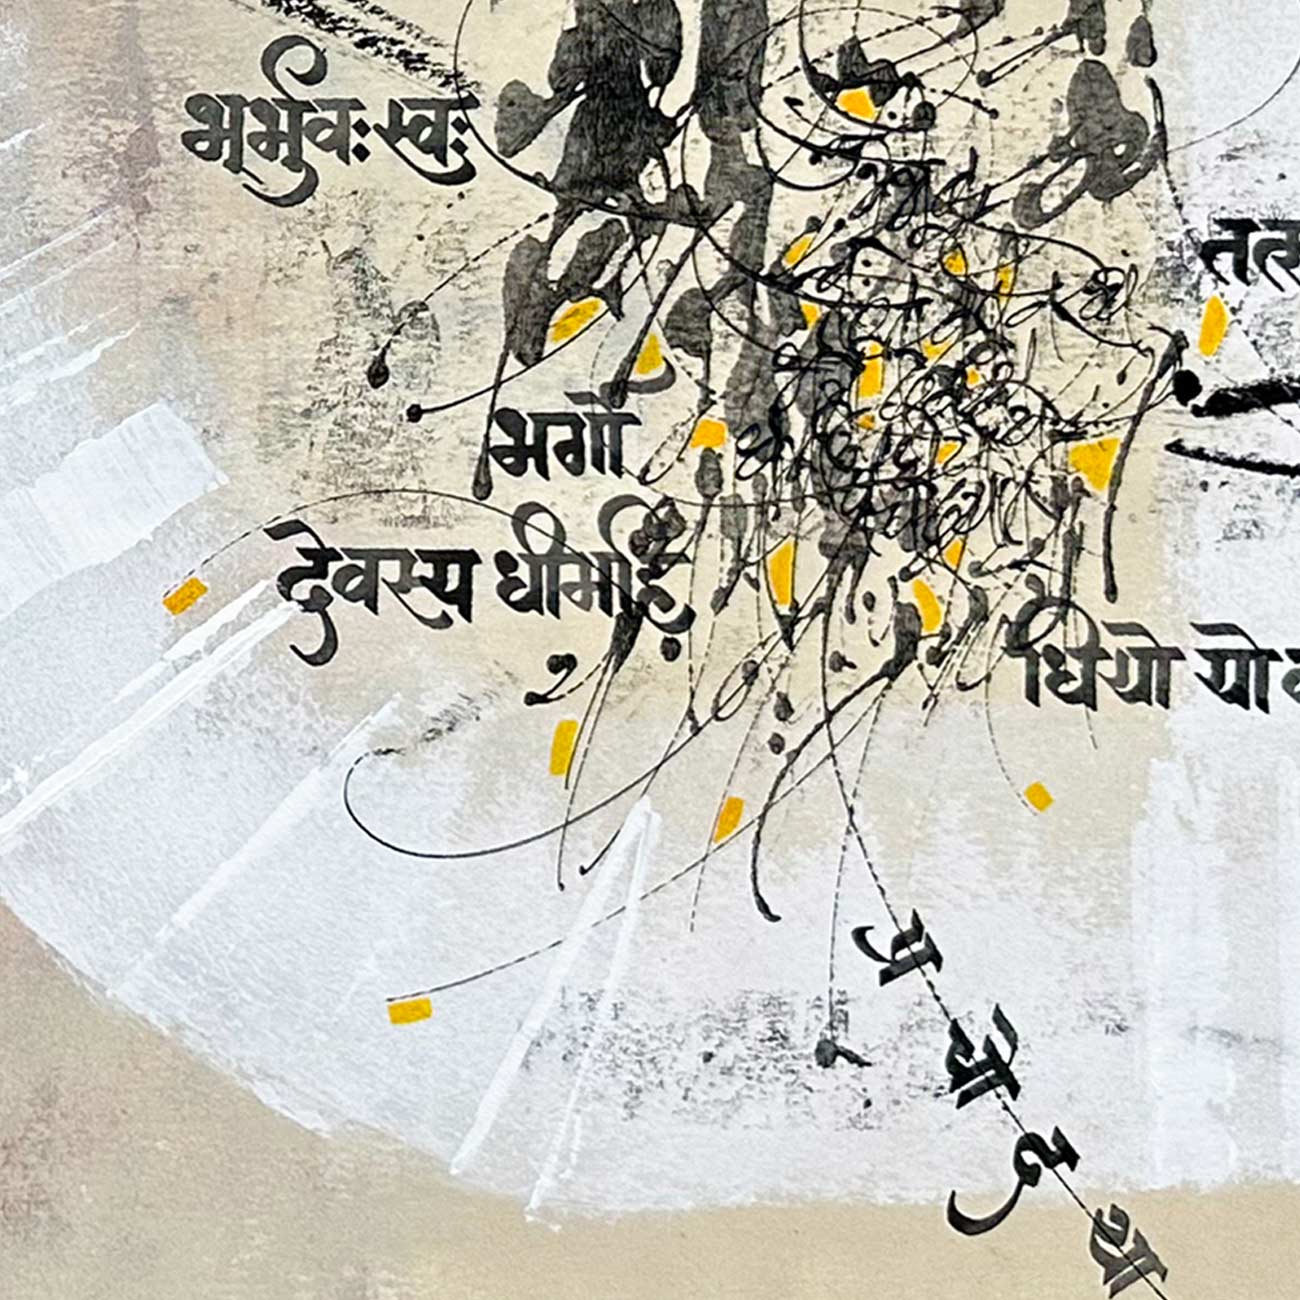 भूर्भुवः स्वः
तत्स
भर्गो
देवस्य धीमहि
धियो यो
प्र
चो
द
या